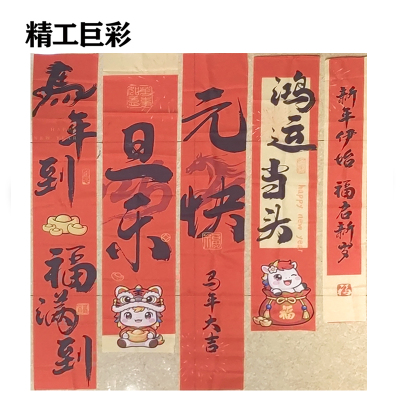 精工巨彩
新年伊始 福启新岁
鸿运当头
happy new year
元快
马年大吉
旦乐
馬年到
福满到
福